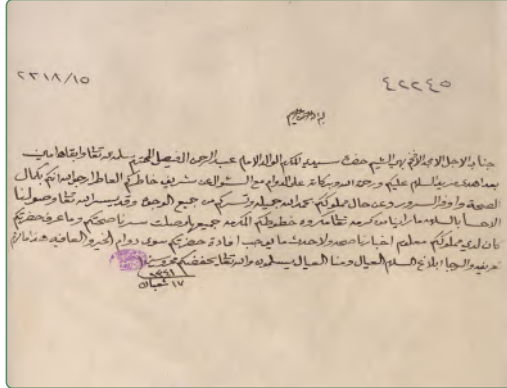 ٢٣١٨/١٥
٤٢٢٤٥
بسم الله الرحمن الرحيم
جناب الاجل الامجد الافخم بهي الشيم حضرة سيدي المكرم الوالد الامام عبد الرحمن الفيصل المحترم سلمه الله تعالى وابقاه امين
بعد اهدى مزيد السلام عليكم ورحمة الله وبركاته على الدوام مع السئوال عن شريف خاطركم العاطر ارجو الله انكم بكمال
الصحة وافر السرور وعن حال مملوككم بحمد الله جميله وتسركم من جميع الوجوه وقد يسر الله تعالى وصولنا
الاحسا بالسلامه خطوطكم المكرمه جميعها وصلت سرنا صحتكم وما عرف حضرتكم
كان لدى مملوككم معلوم اخبارنا من ما يوجب افادة حضرتكم سوى دوام الخير والعافيه هذا ما لزم
تعريفه والرجا ابلاغ السلام العيال ومنا العيال يسلمون والله تعالى يحفظكم
١٣٤١
١٧ شعبان